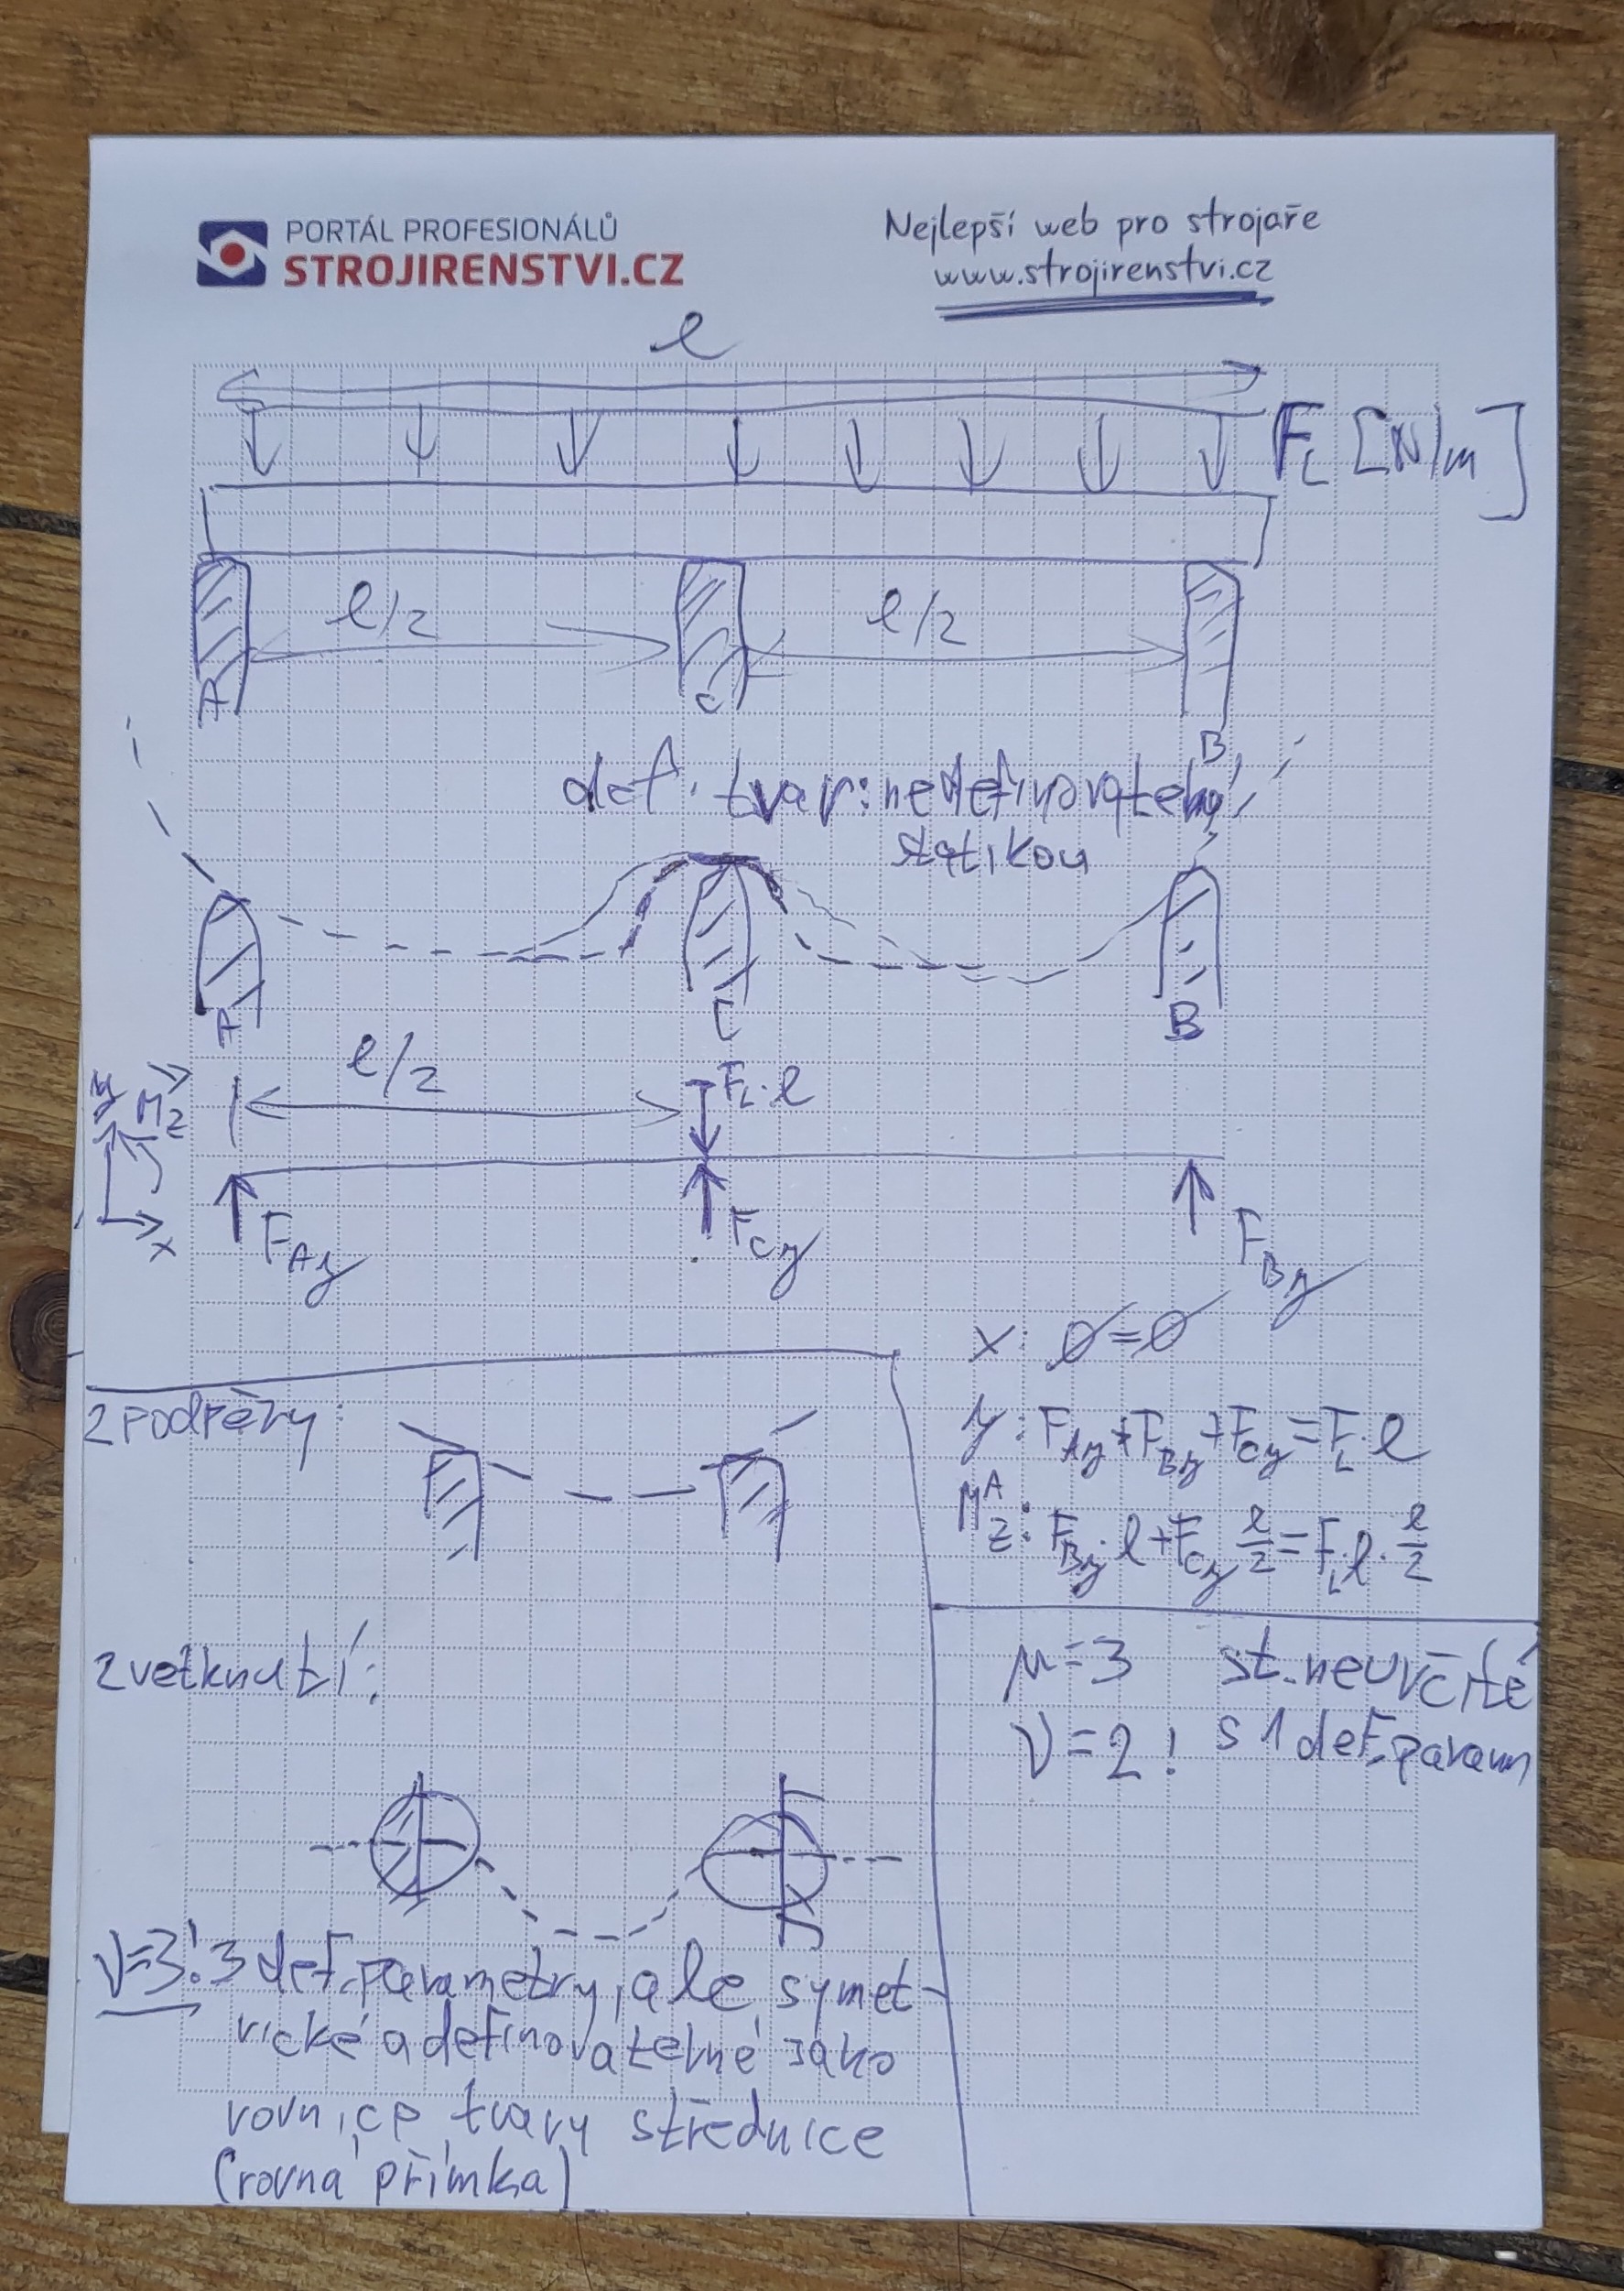 PORTÁL PROFESIONÁLŮ
STROJIRENSTVI.CZ
Nejlepší web pro strojaře
www.strojirenstvi.cz
l
F_L [N/m]
l/2
l/2
A
C
B
def. tvar: nedefinovatelný
statikou
A
C
B
l/2
F_L·l
y
M_z
x
F_Ay
F_Cy
F_By
x: 0=0
y: F_Ay+F_By+F_Cy=F_L·l
M_z^A: F_By·l+F_Cy l/2=F_L l·l/2
2 podpěry:
μ=3 st. neurčité
ν=2! s 1 def. param
2 vetknutí:
ν=3! 3 def. parametry, ale symet-
rické a definovatelné jako
rovnice tvaru střednice
(rovná přímka)